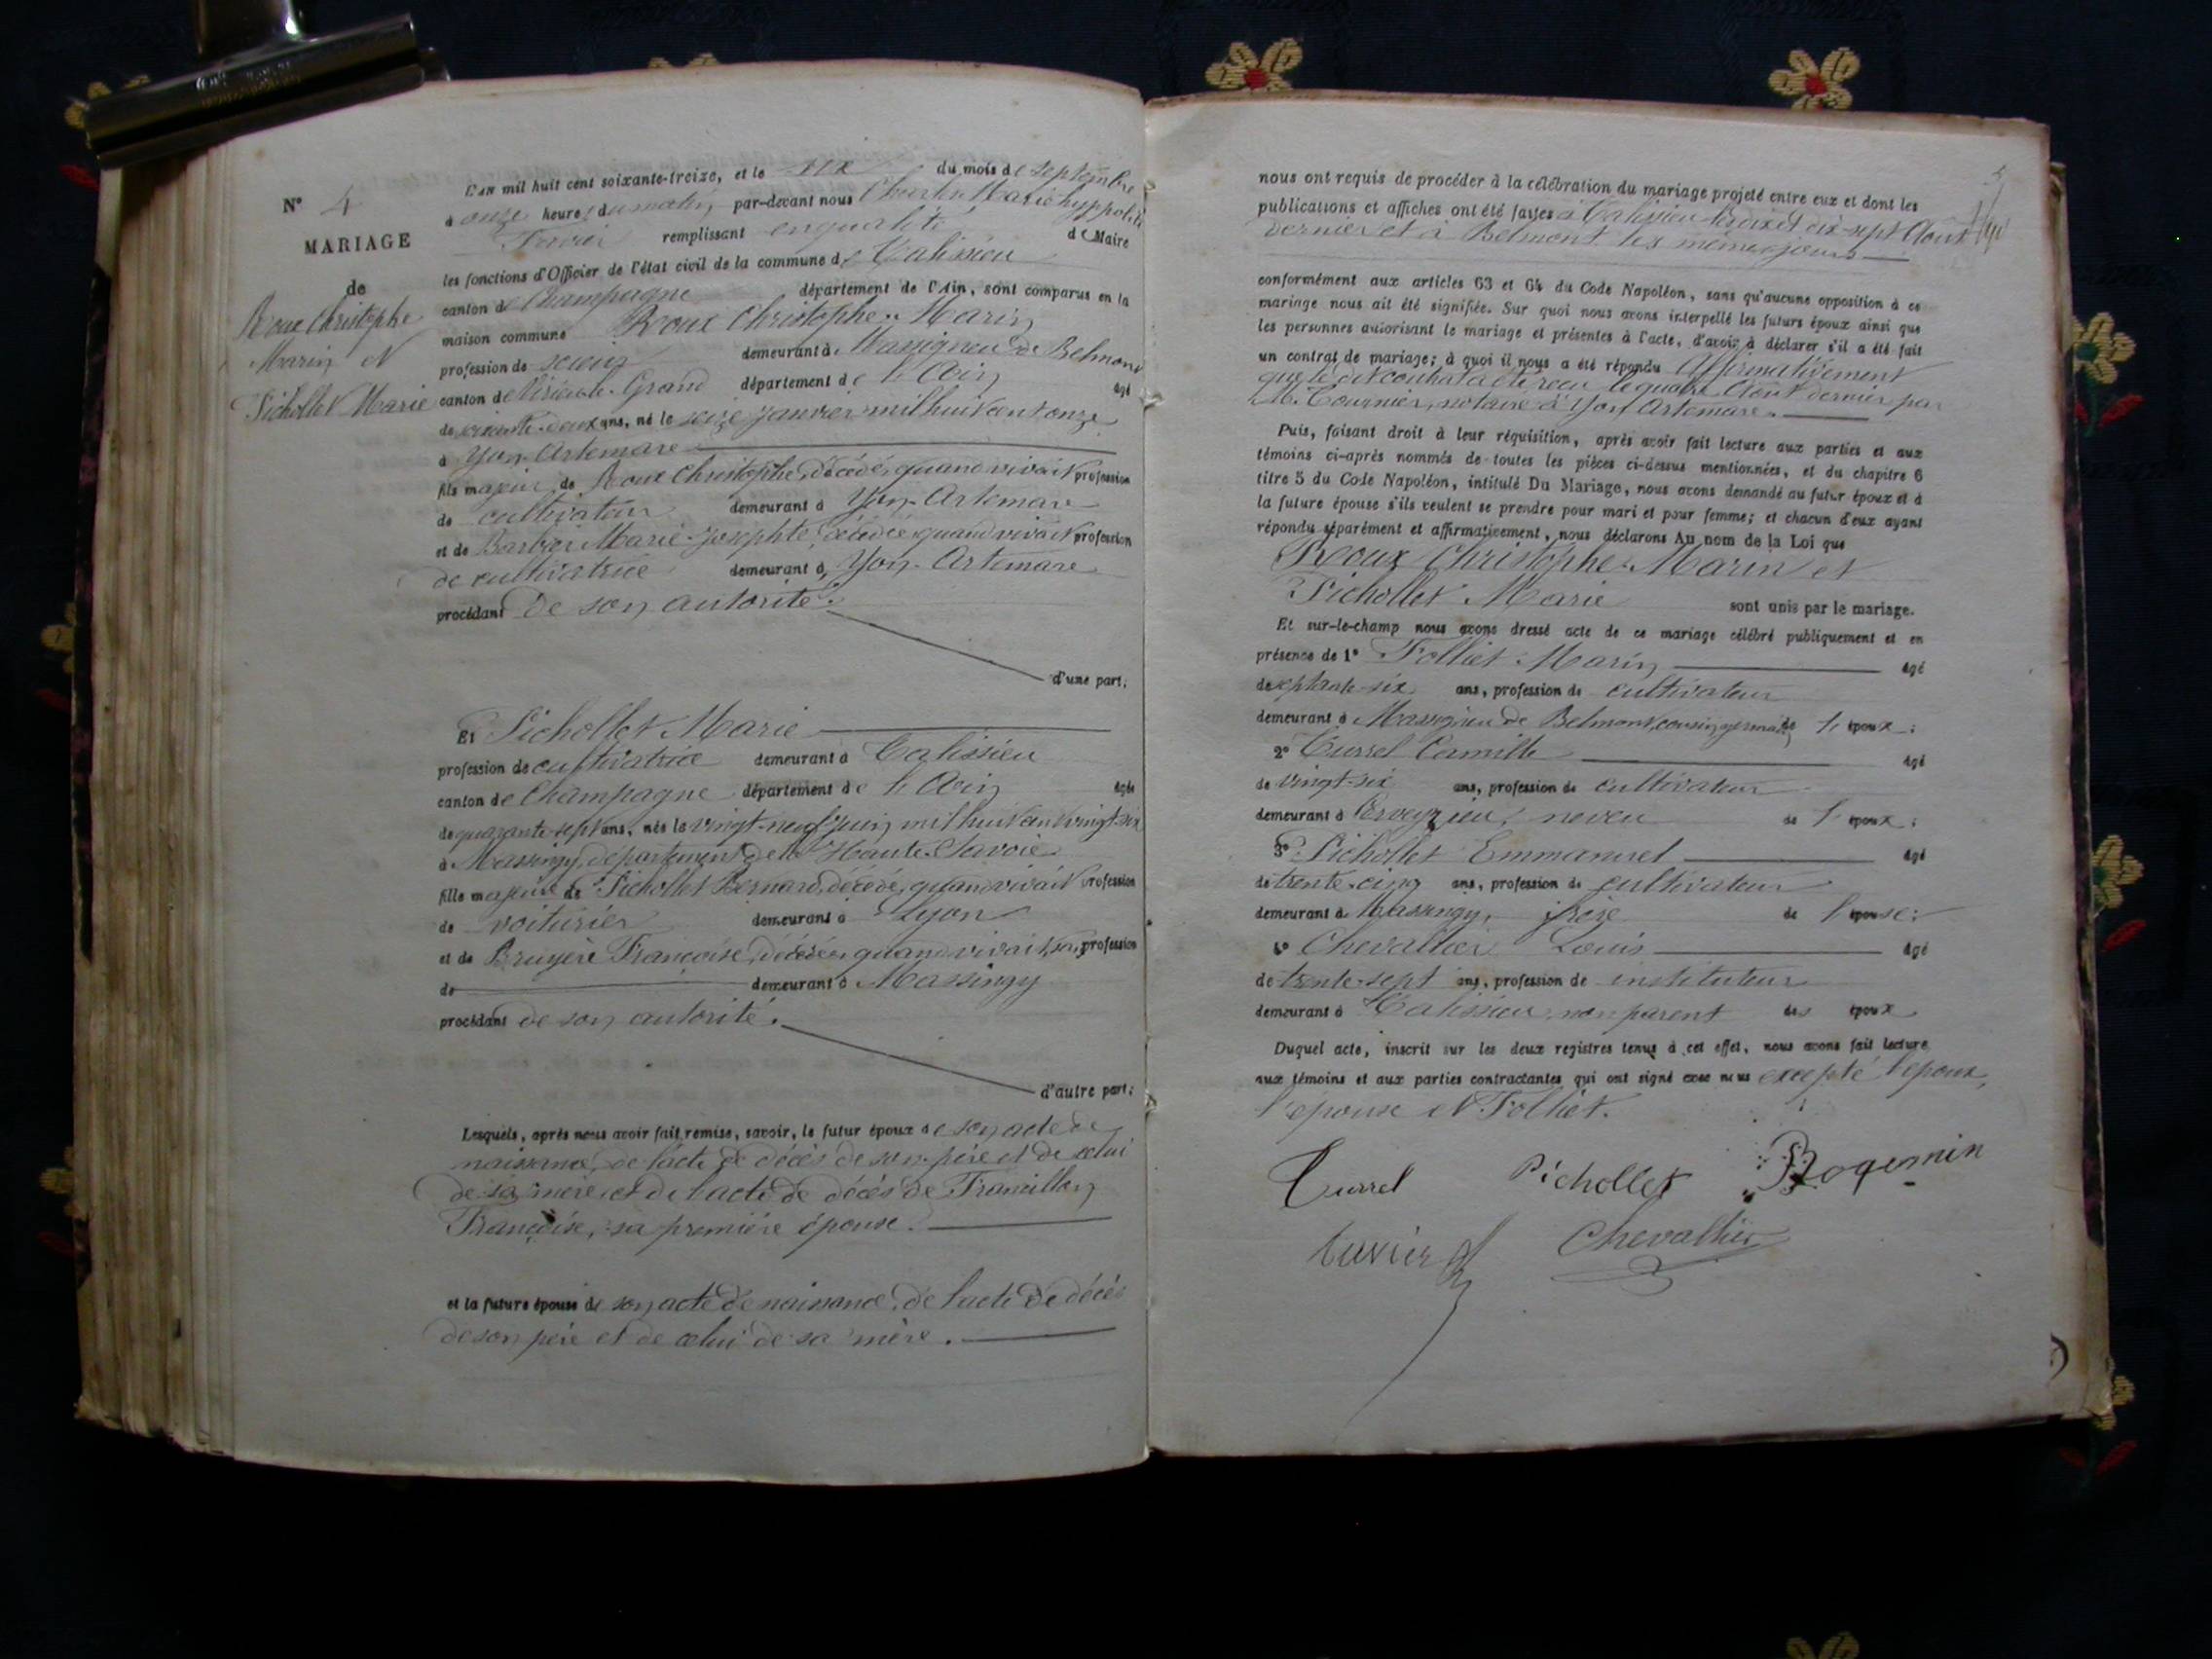 N° 4
MARIAGE
de
Roux Christophe
Marin et
Pichollet Marie
L'AN mil huit cent soixante-treize, et le six du mois de septembre
à onze heures du matin, par-devant nous Charles Marie hyppolite
remplissant en qualité de Maire
les fonctions d'Officier de l'état civil de la commune de Talissieu
canton de Champagne département de l'Ain, sont comparus en la
maison commune Roux Christophe-Marin
profession de demeurant à Massignieu de Belmont
canton de Virieu-le-Grand département de l'Ain âgé
de soixante-deux ans, né le seize janvier mil huit cent onze
à Yon-Artemare
fils majeur de Roux Christophe, décédé, quand vivait profession
de cultivateur demeurant à Yon-Artemare
et de Marie-Josephte, décédée, quand vivait profession
de cultivatrice demeurant à Yon-Artemare
procédant de son autorité.
d'une part;
Et Pichollet Marie
profession de cultivatrice demeurant à Talissieu
canton de Champagne département de l'Ain âgée
de quarante-sept ans, née le vingt-neuf juin mil huit cent vingt-six
à Massingy, département de la Haute-Savoie
fille majeure de Pichollet Bernard, décédé, quand vivait profession
de voiturier demeurant à Lyon
et de Bruyère Françoise, décédée, quand vivait, sans profession
de demeurant à Massingy
procédant de son autorité.
d'autre part;
Lesquels, après nous avoir fait remise, savoir, le futur époux de son acte de
naissance, de l'acte de décès de son père et de celui
de sa mère, et de l'acte de décès de
Françoise, sa première épouse.
et la future épouse de son acte de naissance, de l'acte de décès
de son père et de celui de sa mère.
nous ont requis de procéder à la célébration du mariage projeté entre eux et dont les
publications et affiches ont été faites à Talissieu les dix et dix-sept Août
dernier et à Belmont les mêmes jours
conformément aux articles 63 et 64 du Code Napoléon, sans qu'aucune opposition à ce
mariage nous ait été signifiée. Sur quoi nous avons interpellé les futurs époux ainsi que
les personnes autorisant le mariage et présentes à l'acte, d'avoir à déclarer s'il a été fait
un contrat de mariage; à quoi il nous a été répondu Affirmativement
que le dit contrat a été reçu le quatre Août dernier par
M. Tournier, notaire à Yon Artemare.
Puis, faisant droit à leur réquisition, après avoir fait lecture aux parties et aux
témoins ci-après nommés de toutes les pièces ci-dessus mentionnées, et du chapitre 6
titre 5 du Code Napoléon, intitulé Du Mariage, nous avons demandé au futur époux et à
la future épouse s'ils veulent se prendre pour mari et pour femme; et chacun d'eux ayant
répondu séparément et affirmativement, nous déclarons Au nom de la Loi que
Roux Christophe-Marin et
Pichollet Marie sont unis par le mariage.
Et sur-le-champ nous avons dressé acte de ce mariage célébré publiquement et en
présence de 1° Folliet Marin âgé
de septante-six ans, profession de cultivateur
demeurant à Massignieu de Belmont, cousin germain de l'époux;
2° Turrel Camille âgé
de vingt-six ans, profession de cultivateur
demeurant à Cerveyrieu, neveu de l'époux;
3° Pichollet Emmanuel âgé
de trente-cinq ans, profession de cultivateur
demeurant à Massingy, frère de l'épouse;
4° Chevallier Louis âgé
de trente-sept ans, profession de instituteur
demeurant à Talissieu, non parent des époux
Duquel acte, inscrit sur les deux registres tenus à cet effet, nous avons fait lecture
aux témoins et aux parties contractantes qui ont signé avec nous excepté l'époux,
l'épouse et Folliet.
Turrel Pichollet Bogemin
Chevallier